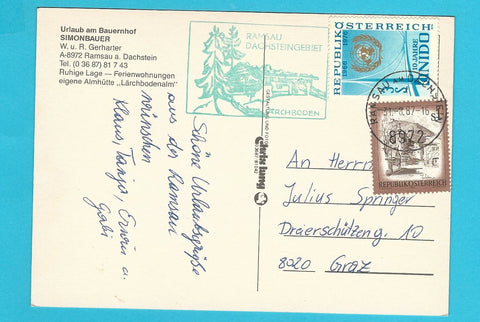 Urlaub am Bauernhof
SIMONBAUER
W. u. R. Gerharter
A-8972 Ramsau a. Dachstein
Tel. (0 36 87) 81 7 43
Ruhige Lage — Ferienwohnungen
eigene Almhütte „Lärchbodenalm"
RAMSAU
DACHSTEINGEBIET
LÄRCHBODEN
REPUBLIK ÖSTERREICH
1966 1976
10 JAHRE
UNIDO
RAMSAU AM DACHSTEIN
8972
REPUBLIK ÖSTERREICH
Schöne Urlaubsgrüße
aus der Ramsau
wünschen
Klaus, Tanja, Erwin u.
Gabi
An Herrn
Julius Springer
Dreierschützeng. 10
8020 Graz